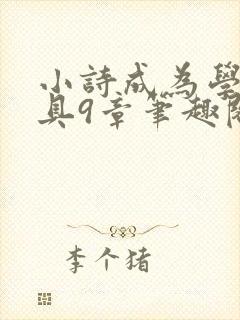 小詩成為學
具9章筆趣閣
李个猪